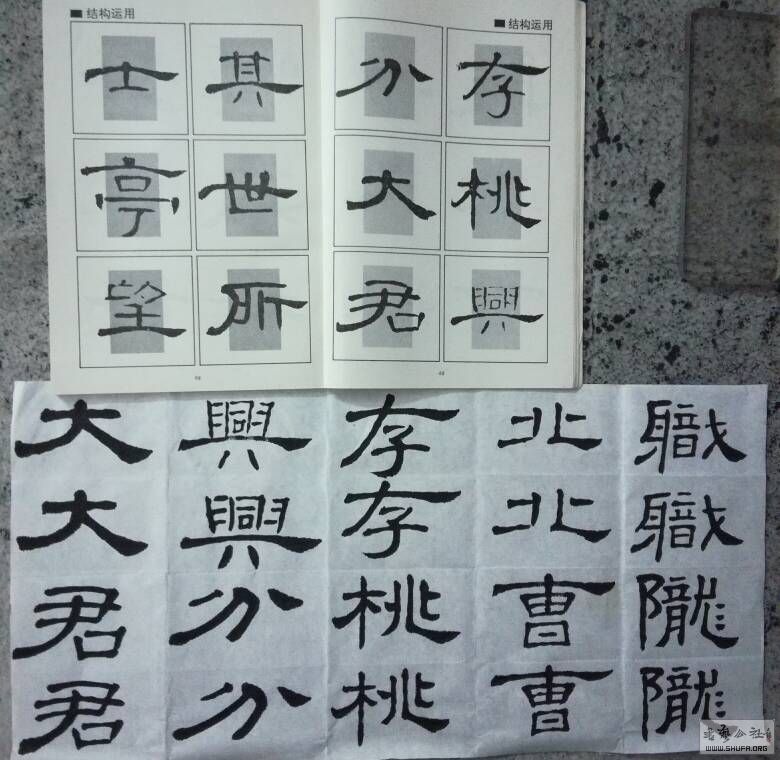 结构运用
存桃興
分大君
结构运用
其世所
士亭望
職職隴隴
北北曹曹
存存桃桃
興興分分
大大君君
书艺公社
WWW.SHUFA.ORG